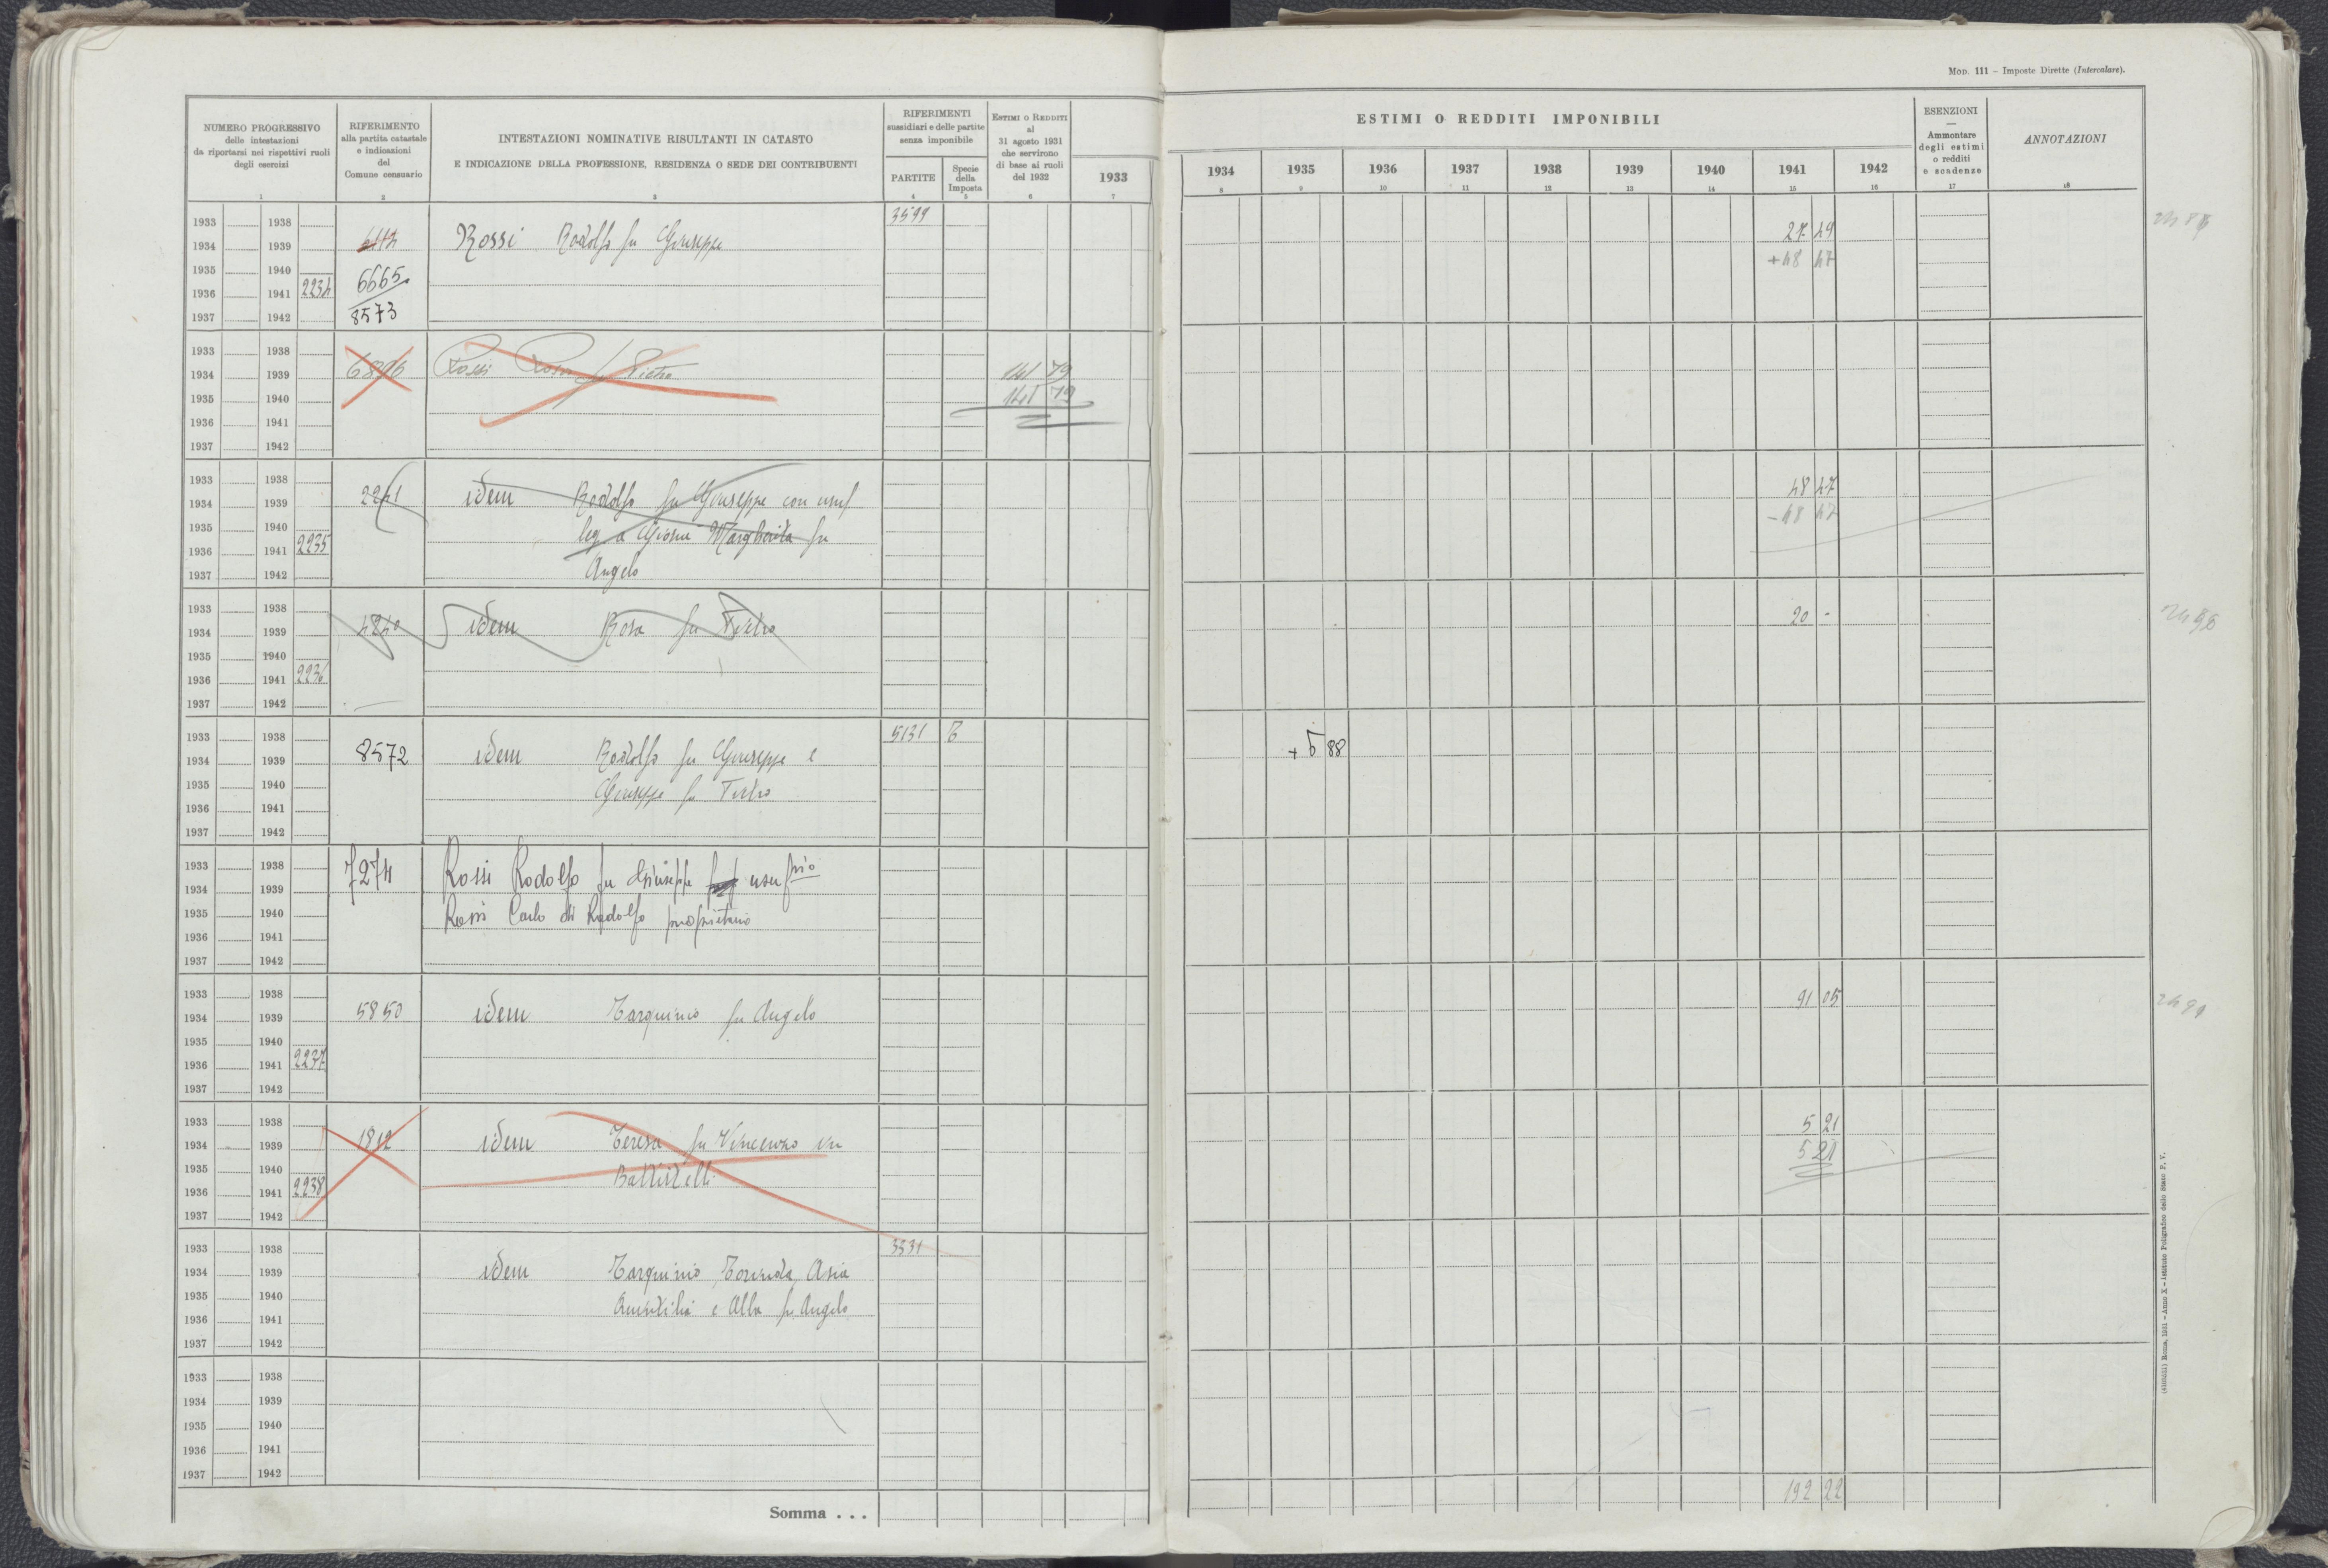 Mod. 111 – Imposte Dirette (Intercalare).
NUMERO PROGRESSIVO
delle intestazioni
da riportarsi nei rispettivi ruoli
degli esercizi
1
RIFERIMENTO
alla partita catastale
e indicazioni
del
Comune censuario
2
INTESTAZIONI NOMINATIVE RISULTANTI IN CATASTO
E INDICAZIONE DELLA PROFESSIONE, RESIDENZA O SEDE DEI CONTRIBUENTI
3
RIFERIMENTI
sussidiari e delle partite
senza imponibile
PARTITE
4
Specie
della
Imposta
5
Estimi o Redditi
al
31 agosto 1931
che servirono
di base ai ruoli
del 1932
6
1933
7
ESTIMI O REDDITI IMPONIBILI
1934 1935 1936 1937 1938 1939 1940 1941 1942
8 9 10 11 12 13 14 15 16
ESENZIONI
—
Ammontare
degli estimi
o redditi
e scadenze
17
ANNOTAZIONI
18
1933 1938 3599
1934 1939 Rossi Rodolfo fu Giuseppe 27 49
1935 1940 6665 +48 47
1936 1941 2234
1937 1942 8573
1933 1938
1934 1939 6896 Rossi Rosa fu Pietro 141 79
1935 1940 141 79
1936 1941
1937 1942
1933 1938
1934 1939 2241 idem Rodolfo fu Giuseppe con usuf 48 47
1935 1940 leg a Giosuè Margherita fu -48 47
1936 1941 2235
1937 1942 Angelo
1933 1938
1934 1939 4840 idem Rosa fu Pietro 20 -
1935 1940
1936 1941 2236
1937 1942
1933 1938 5131 T
1934 1939 8572 idem Rodolfo fu Giuseppe e + 5 88
1935 1940 Giuseppe fu Pietro
1936 1941
1937 1942
1933 1938 7274 Rossi Rodolfo fu Giuseppe usufrio
1934 1939
1935 1940 Rossi Carlo di Rodolfo proprietario
1936 1941
1937 1942
1933 1938
1934 1939 5850 idem Tarquinio fu Angelo 91 05
1935 1940
1936 1941 2237
1937 1942
1933 1938 5 21
1934 1939 1812 idem Teresa fu Vincenzo in 5 21
1935 1940 Battistelli
1936 1941 2238
1937 1942
1933 1938 3331
1934 1939 idem Tarquinio, Asia
1935 1940 e Alba fu Angelo
1936 1941
1937 1942
1933 1938
1934 1939
1935 1940
1936 1941
1937 1942
Somma . . . 192 22
Roma, 1931 – Anno X – Istituto Poligrafico dello Stato P. V.